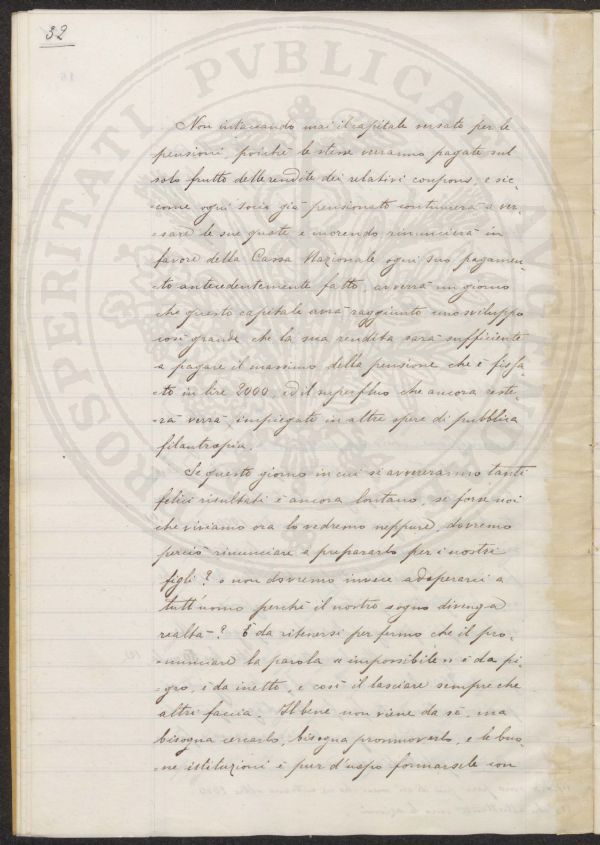 32
PROSPERITATI PVBLICAE AVGENDAE
Non intaccando mai il capitale versato per le
pensioni, poichè le stesse verranno pagate sul
solo frutto delle rendite dei relativi coupons, e sic-
-come ogni socio già pensionato continuerà a ver-
-sare le sue quote e morendo rinuncierà in
favore della Cassa Nazionale ogni suo pagamen-
-to antecedentemente fatto, avverrà un giorno
che questo capitale avrà raggiunto uno sviluppo
così grande che la sua rendita sarà sufficiente
a pagare il massimo della pensione che è fissa-
-to in lire 2000, ed il superfluo che ancora reste-
-rà verrà impiegato in altre opere di pubblica
filantropia.
Se questo giorno in cui si avvereranno tanti
felici risultati è ancora lontano, se forse noi
che viviamo ora lo vedremo neppure, dovremo
perciò rinunciare a prepararlo per i nostri
figli? o non dovremo invece adoperarci a
tutt'uomo perchè il nostro sogno divenga
realtà? È da ritenersi per fermo che il pro-
-nunciare la parola "impossibile" è da pi-
-gro, è da inetto, e così il lasciare sempre che
altri faccia. Il bene non viene da sè, ma
bisogna cercarlo, bisogna promuoverlo, e le buo-
-ne istituzioni è pur d'uopo formarsele con